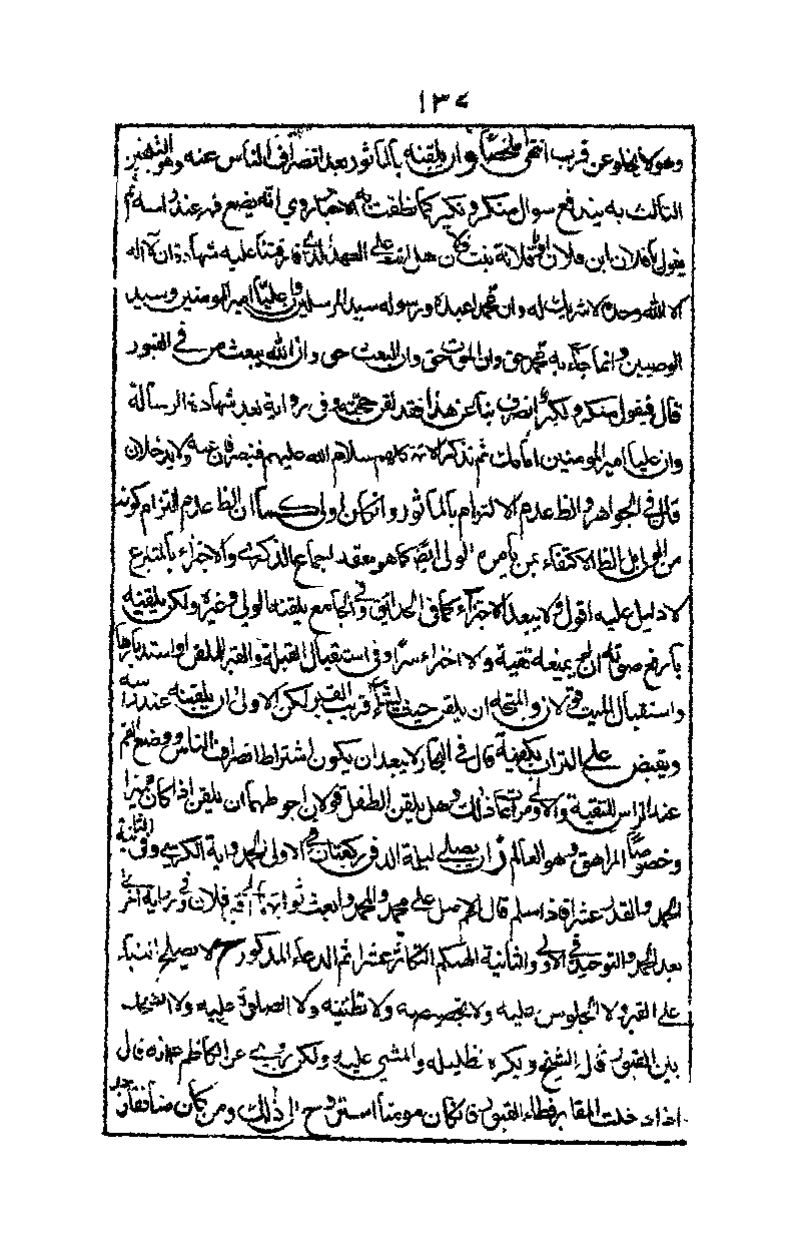 ١٣٧
وهو لا يخلو عن قريب انتهى ملخصا وان يلقنه بالماثور بعد انصراف الناس عنه وهو التلقين
الثالث به يندفع سوال منكر ونكير كما نطقت به الاخبار وروي انه يضع فمه عند راسه ثم
يقول يا فلان ابن فلان او يا فلانة بنت فلان هل انت على العهد الذي فارقتنا عليه شهادة ان لا اله
الا الله وحده لا شريك له وان محمدا عبده ورسوله سيد المرسلين وان عليا امير المومنين وسيد
الوصيين وانما جاء به محمد حق وان الموت حق وان البعث حق وان الله يبعث من في القبور
قال فيقول منكر ونكير انصرف بنا عن هذا فقد لقن حجته وفي رواية بعد شهادة الرسالة
وان عليا امير المومنين امامك ثم تذكر الائمة كلهم سلام الله عليهم فينصرفان عنه ولا يدخلان
قال في الجواهر والظ عدم الالتزام بالماثور وان كان اولى كما ان الظ عدم التزام كونه
من الولي بل الظ الاكتفاء بمن يامره الولي ايضا كما هو معقد اجماع الذكرى والاجزاء بالمتبرع
لا دليل عليه اقول ولا يبعد الاجزاء كما في الحدائق وفي الجامع يلقنه الولي وغيره ولكن يلقنه
بارفع صوته ان لم يمنعه تقية والا اجزاء سرا وفي استقبال القبلة والقبر للملقن او استدبارها
واستقبال الميت قولان والمتجه ان يلقن حيث شاء قريب القبر لكن الاولى ان يلقنه عند راسه
ويقبض على التراب بكفيه قال في البحار لا يبعد ان يكون اشتراط انصراف الناس ووضع الفم
عند الراس للتقية والاولى مراعاة ذلك وهل يلقن الطفل قولان احوطهما ان يلقن اذا كان مميزا
وخصوصا المراهق وهو العالم وان يصلي ليلة الدفن ركعتان في الاولى الحمد واية الكرسي وفي الثانية
الحمد والقدر عشرا فاذا سلم قال اللهم صل على محمد وال محمد وابعث ثوابها الى قبر فلان وفي رواية اخرى
بعد الحمد التوحيد في الاولى والثانية الهيكم التكاثر عشرا ثم الدعاء المذكور ح لا يصلح البناء
على القبر ولا الجلوس عليه ولا تجصيصه ولا تطيينه ولا الصلوة عليه ولا
بين القبور قال الشيخ ويكره تظليله والمشي عليه ولكن روي عن الكاظم انه قال
اذا دخلت المقابر فطاء القبور فان كان مومنا استروح الى ذلك ومن كان منافقا وجد